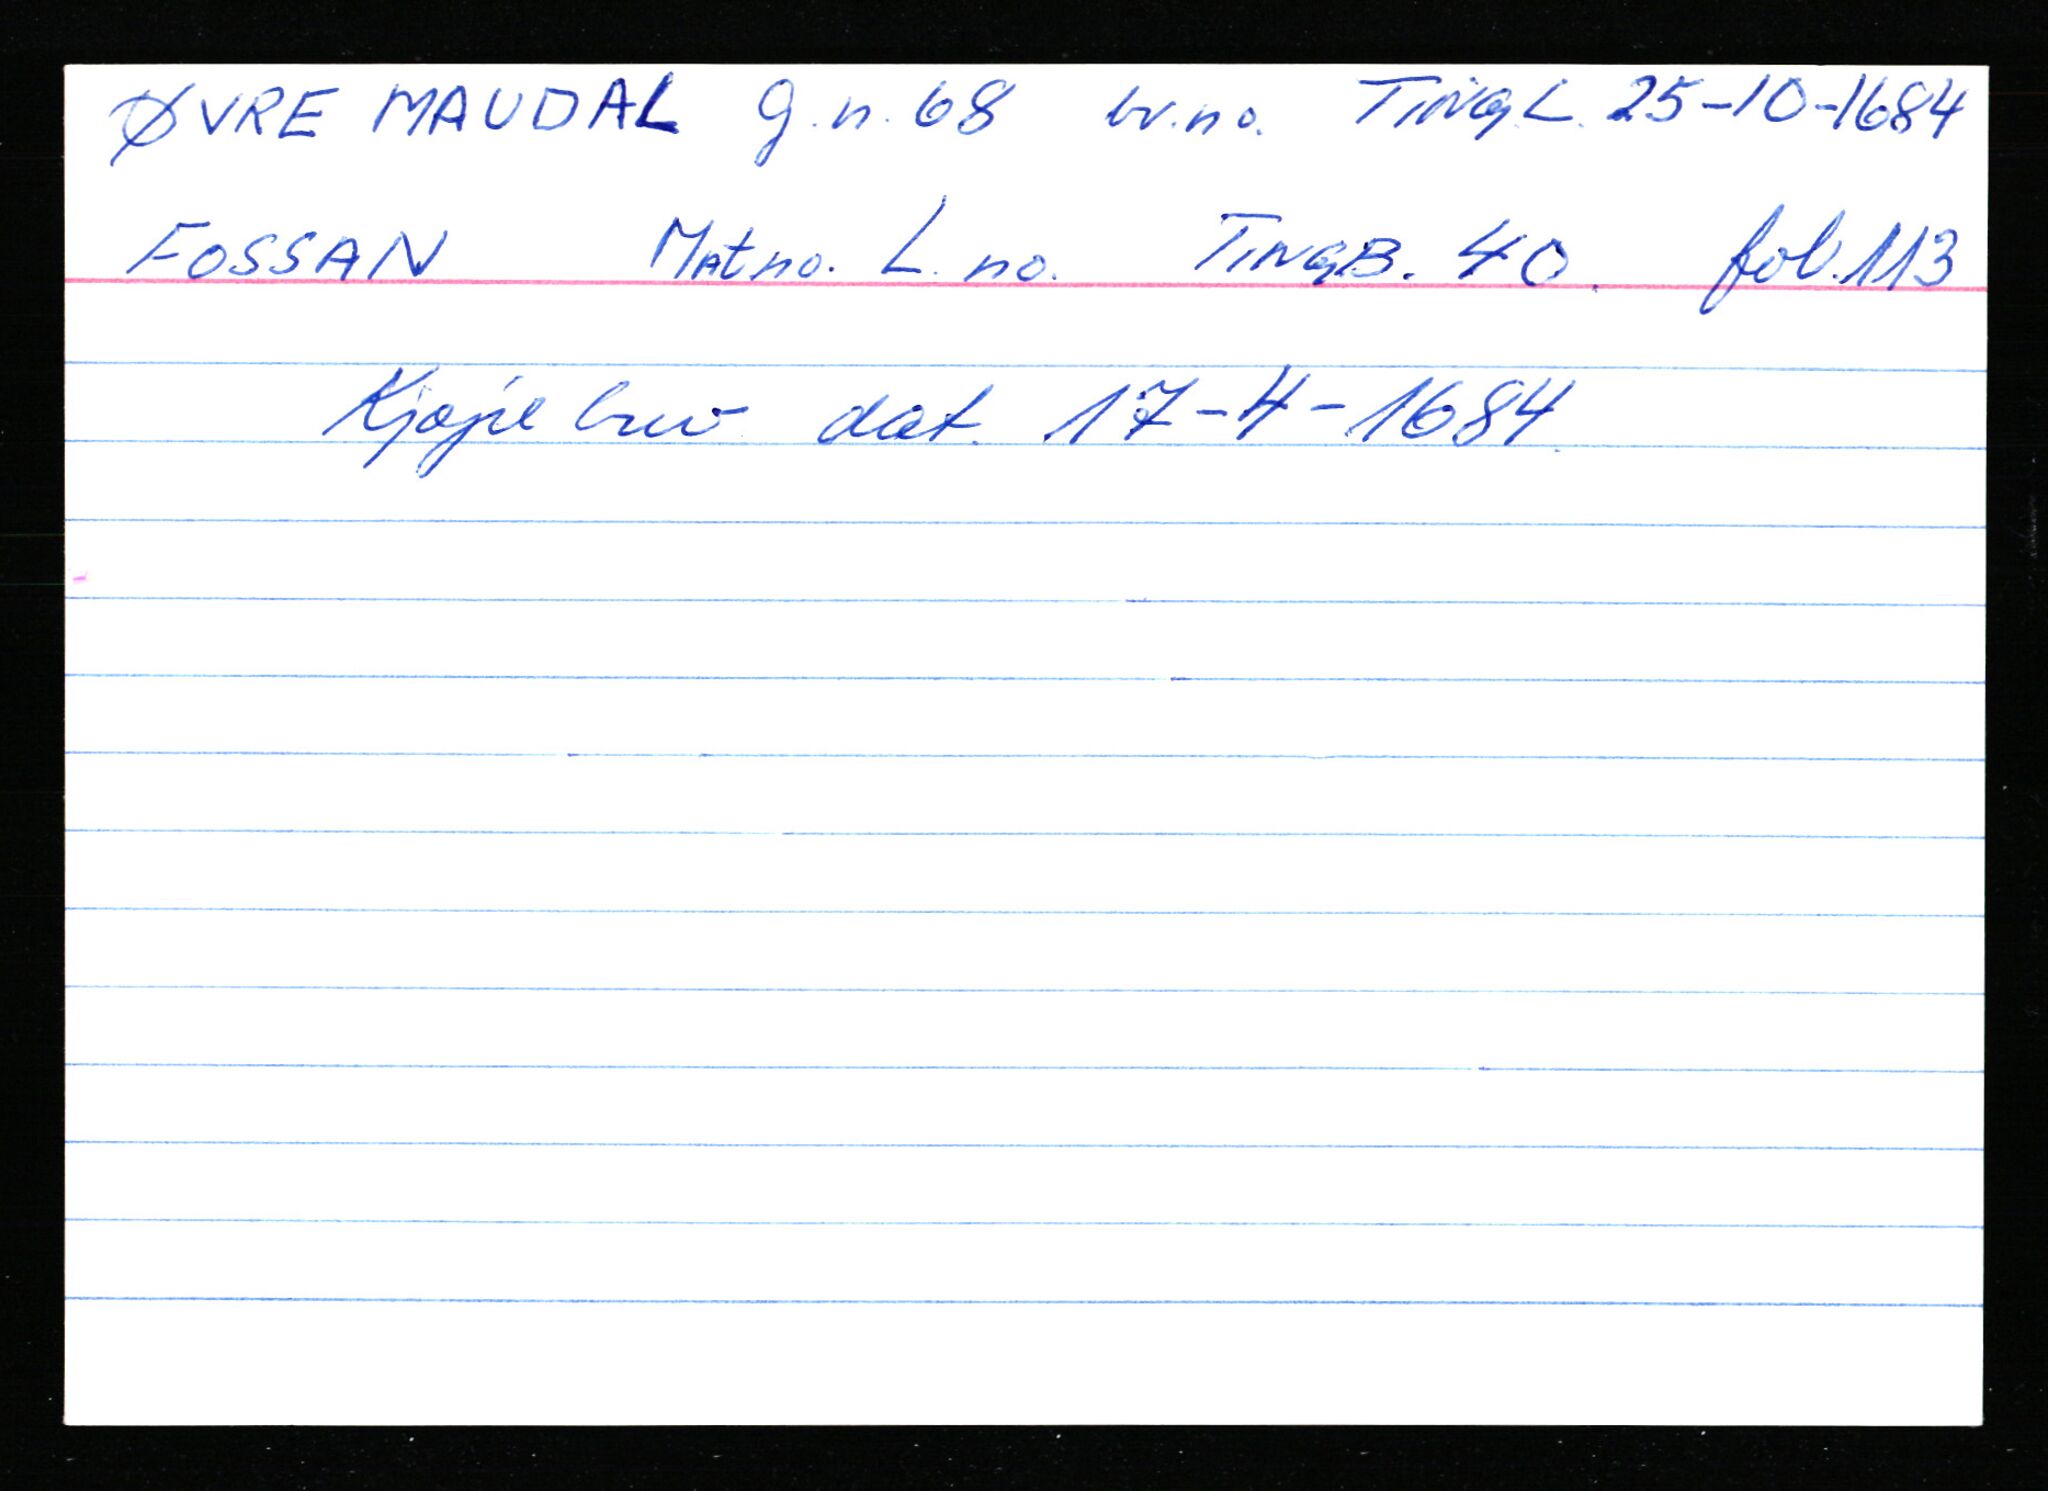 ØVRE MAUDAL g.n. 68 br.no. TINGL. 25-10-1684
FOSSAN Mat no. L. no. TINGB. 40. fol. 113
Kjøpebrev dat. 17-4-1684.